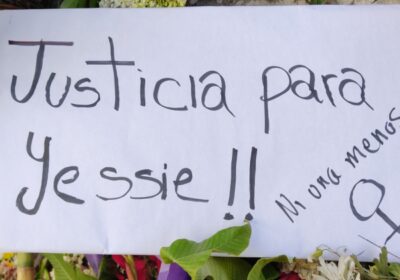 Justicia para
Yessie!!
Ni una menos